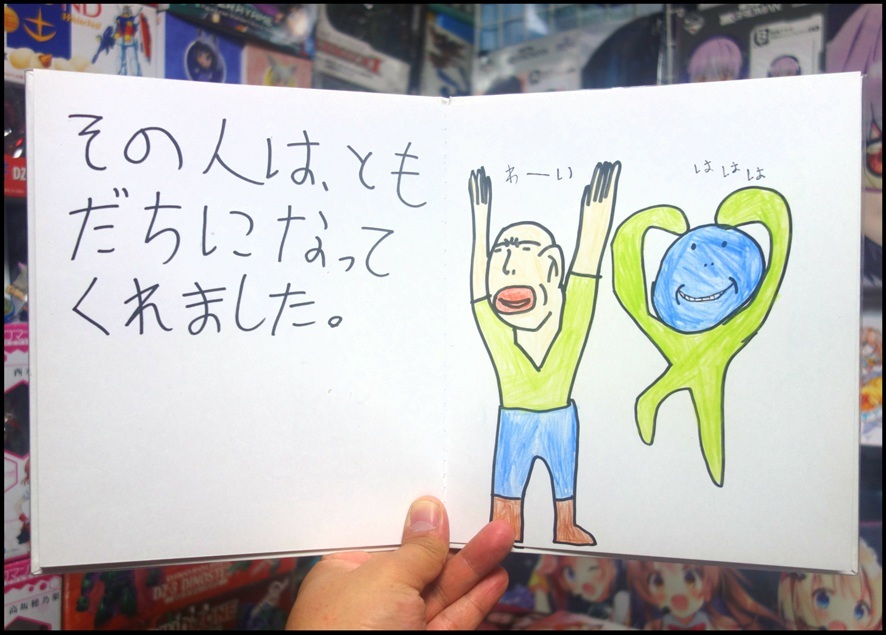 その人は、とも
だちになって
くれました。
わーい
ははは